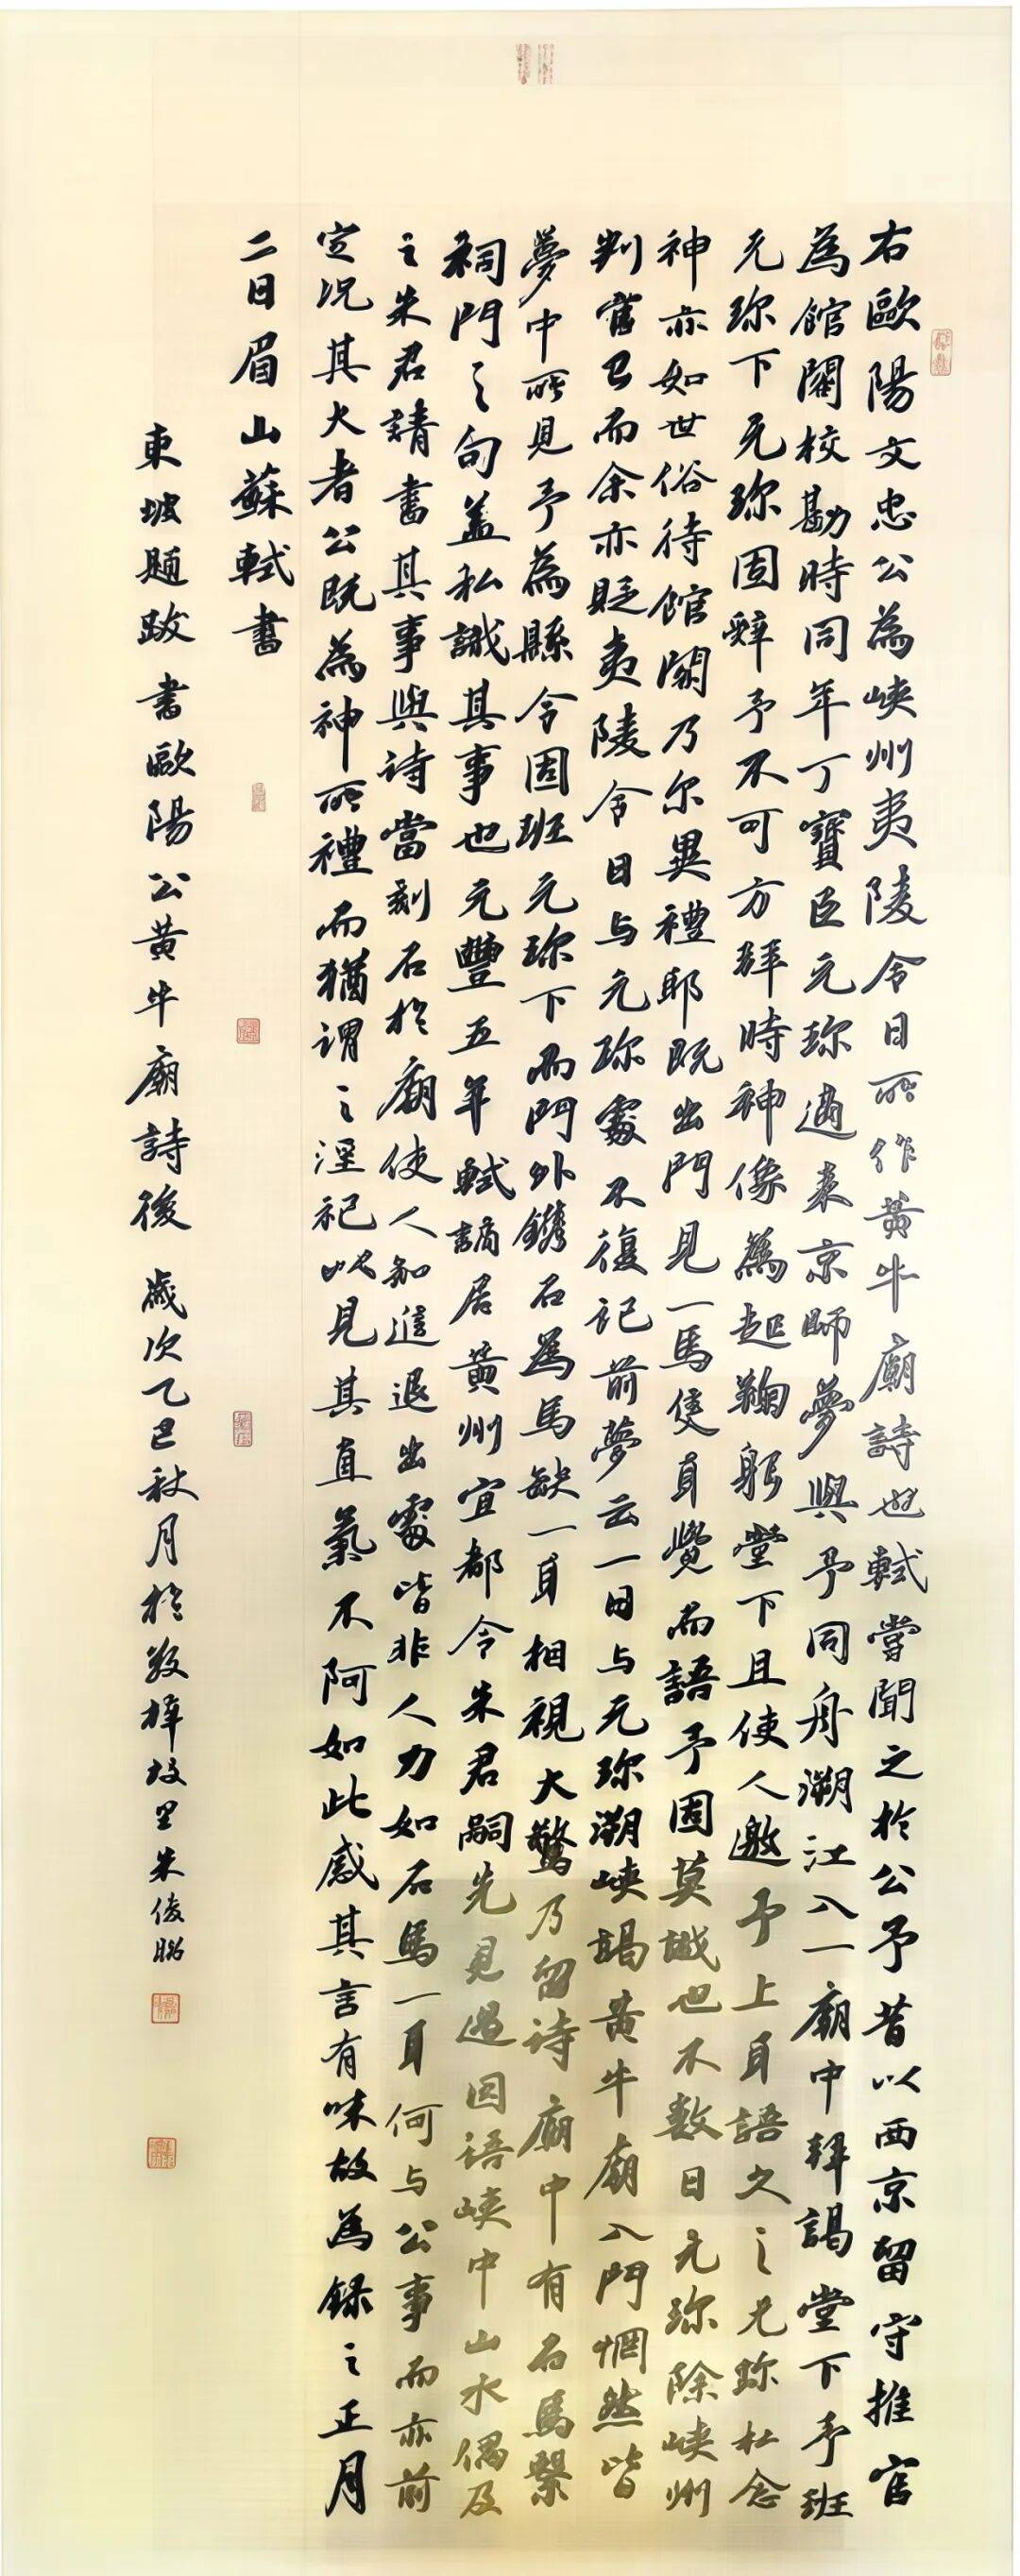 右歐陽文忠公為峽州夷陵令日所作黃牛廟詩也軾嘗聞之於公予昔以西京留守推官
為館閣校勘時同年丁寶臣元珍適来京師夢與予同舟溯江入一廟中拜謁堂下予班
元珍下元珍固辭予不可方拜時神像為起鞠躬堂下且使人邀予上耳語久之元珍私念
神亦如世俗待館閣乃尔異禮耶既出門見一馬隻耳覺而語予固莫識也不數日元珍除峽州
判官已而余亦貶夷陵令日与元珍處不復記前夢云一日与元珍溯峽謁黃牛廟入門惘然皆
夢中所見予為縣令固班元珍下而門外鐫石為馬缺一耳相視大驚乃留詩廟中有石馬繫
祠門之句蓋私識其事也元豐五年軾謫居黃州宜都令朱君嗣先見過因語峽中山水偶及
之朱君請書其事與詩當刻石於廟使人知進退出處皆非人力如石馬一耳何与公事而亦前
定况其大者公既為神所禮而猶謂之淫祀以見其直氣不阿如此感其言有味故為錄之正月
二日眉山蘇軾書
東坡題跋書歐陽公黃牛廟詩後 歲次乙巳秋月於敖樟故里朱俊聪